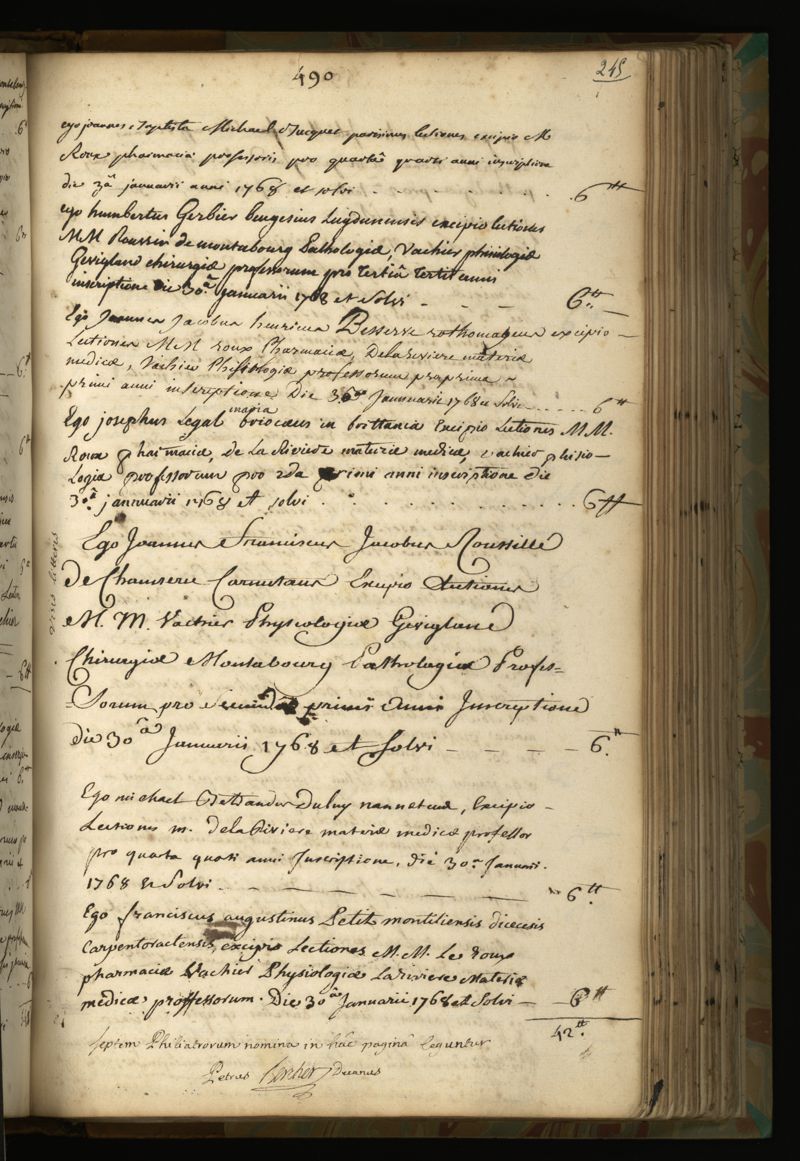 490
245
ego joannes Baptista Michael Jacquet parisinus lectiones excipio M
Roux pharmaciæ professoris pro quartâ quarti anni inscriptione
die 30â januarii anni 1768 et solvi - - - - 6tt
ego humbertus Gerbier Lugdunensis excipio lectiones
MM Roussin de montabourg Pathologiæ, Vachier phisiologiæ
Gevigland chirurgiæ professorum pro tertiâ tertii anni
inscriptione Die 30.â Januarii 1768 et Solvi - - - 6.tt
Ego Joannes Jacobus henricus Besserve rothomagæus excipio
Lectiones M M roux Pharmaciæ, Delariviere materiæ
medicæ, Vachier Phisiologiæ professorum pro prima
primi anni inscriptione Die 30â Januuarii 1768 et Solvi ..... 6tt
Ego josephus Legal maria briocæus in brittania Excipio Lectiones M M.
Roux pharmaciæ, de La Riviere materiæ medicæ, vachier phisio-
Logiæ professorum pro 2da primi anni inscriptione die
30.â januarii 1768 et solvi . . . . . . . . . 6tt
Ego Joannes Franciscus Jacobus Roussille
de Chamseru Carnutæus Excipio Lectiones
M. M. Vachier Physiologiæ Gevigland
Chirurgiæ Montabourg Pathologiæ Profes=
=sorum pro Secundâ primi Anni Inscriptione
die 30â Januarii 1768 et Solvi - - - - 6.tt
Ego michael Dulury nannetæus, Excipio
Lectiones m. dela Riviere materiæ medicæ professor
pro quarta quarti anni Inscriptione, die 30.a Januarii.
1768 et Solvi - - - - - - 6.tt
Ego franciscus augustinus Petit montiliensis diœcesis
Carpentoractensis, excipio Lectiones M. M. Le roux
pharmaciæ Vachier Physiologiæ Lariviere Materiæ
medicæ professorum. Die 30â Januarii 1768 et Solvi - - 6tt
42.tt
septem Philiatrorum nomina in hâc paginâ leguntur
Petrus Bercher Decanus